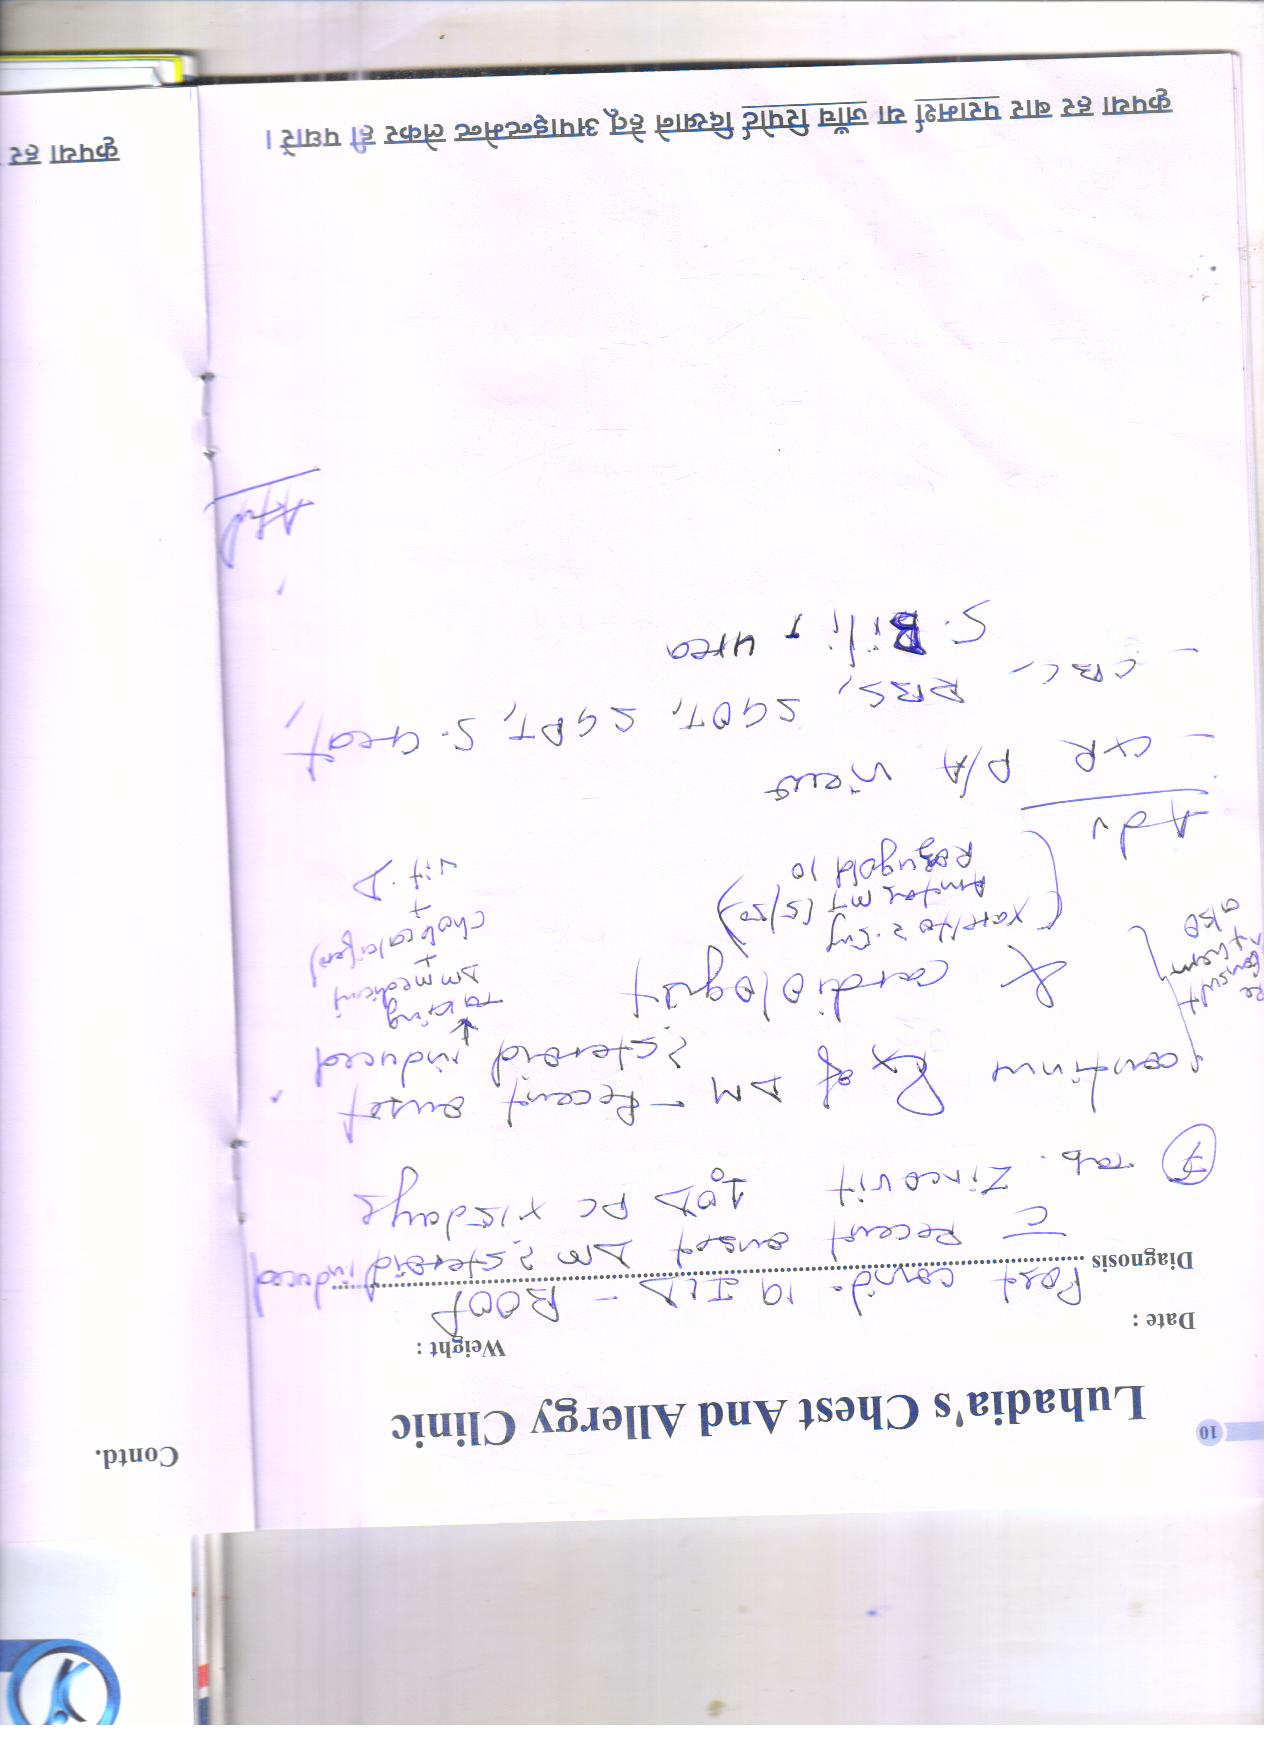 10
Luhadia's Chest And Allergy Clinic
Date :
Weight :
Post covid-19 ILD - BOOP
Diagnosis
c Recent onset DM ? steroid induced
7 Tab. Zincovit 1OD PC x 15 days
continue Rx of DM - Recent onset
? steroid induced
& cardiologist
Taking
DM medicine
+
+
Vit. D
Re
consult
them
also
Xarelto 2.5mg
MT (5/50)
10
Adv
- CXR P/A view
- CBC, RBS, SGOT, SGPT, S. Creat,
S. Bili, urea
कृपया हर बार परामर्श या जाँच रिपोर्ट दिखाने हेतु अपाइन्टमेन्ट लेकर ही पधारें।
Contd.
कृपया हर